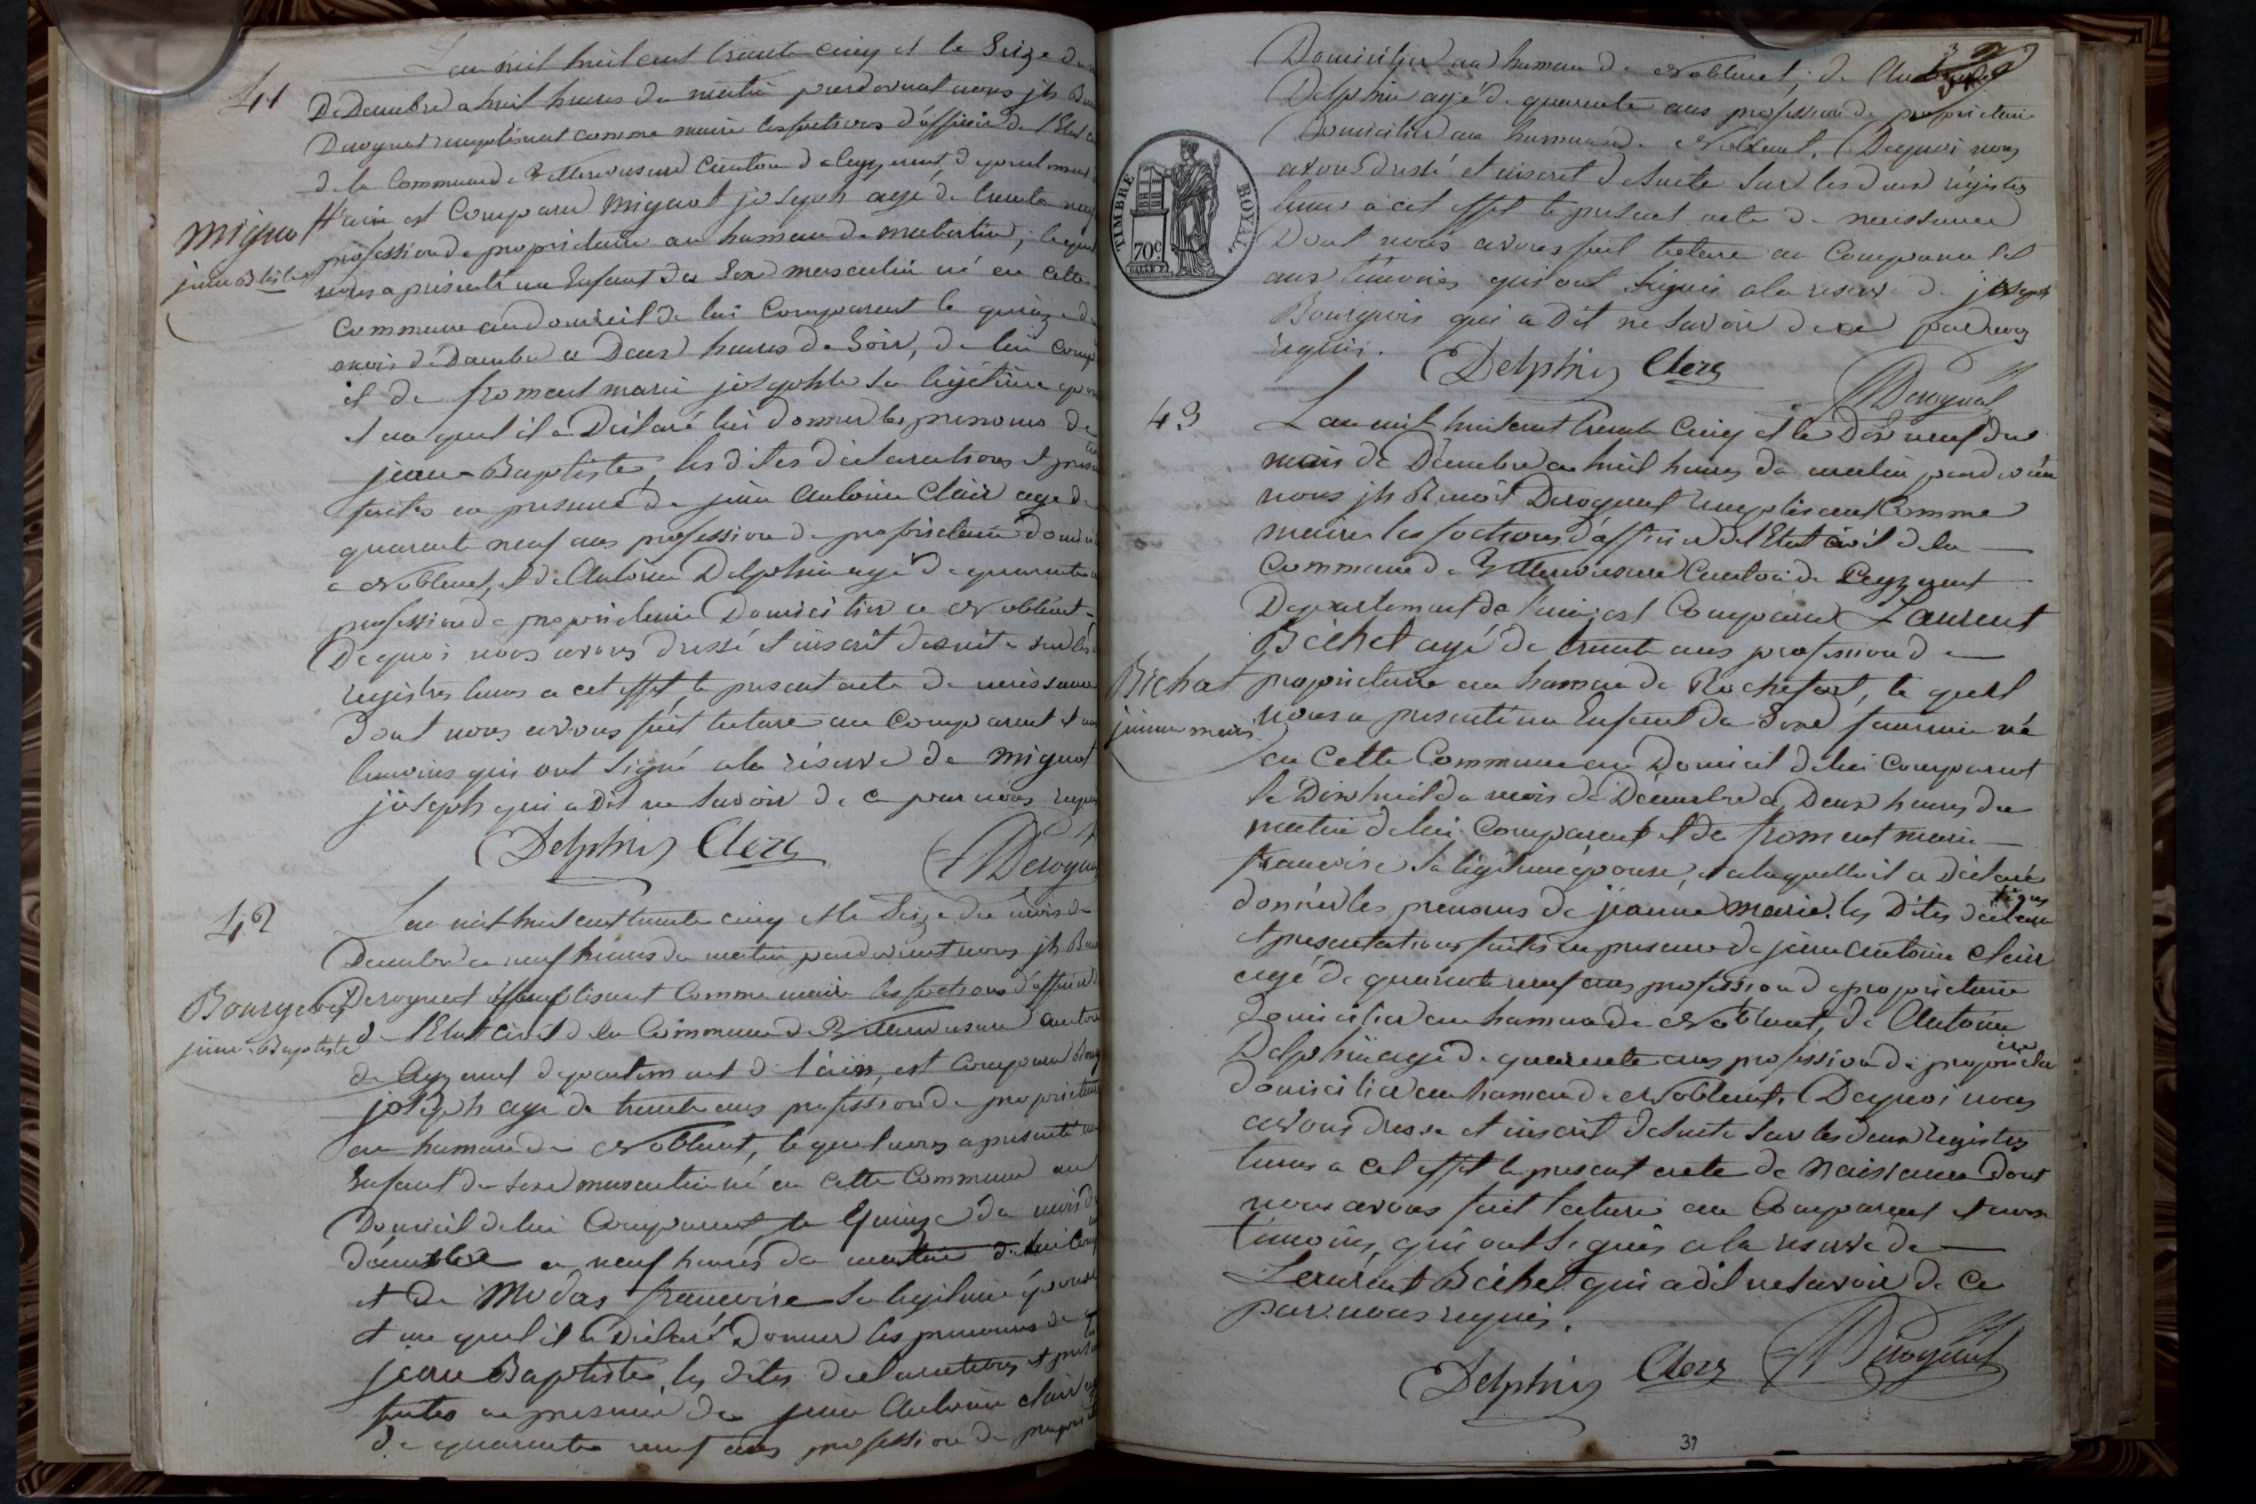 41
L'an mil huit cent trente cinq et le Seize du
De Decembre a huit heures du matin pardevant nous jh Ben
Derognat remplissant comme maire les foctions d'officier de l'Etat
de la Commune de Villereversure Canton de Ceyzeriat, departement
Mignot
jean Bte
l'ain est Comparu Mignot joseph agé de trente neuf
profession de propriétaire au hameau de ; lequel
nous a présenté un Enfant du Sexe masculin né en cette
Commune au domicil de lui Comparant le quinze du
mois de Decembre a Deux heures du Soir, de lui Comp
et de froment marie josephte Sa légitime epou
et au quel il a Déclaré lui donner les prenoms de
jean-Baptiste, les dites déclarations et presen
faites en présence de jean Antoine Clair agé de
quarante neuf ans profession de propriétaire domici
a Noblens, et de Antoine Delphin agé de quarante
profession de propriétaire Domicilier a Noblens -
De quoi nous avons dressé et inscrit desuite sur les
registres tenus a cet effet, le present acte de naissance
dont nous avons fait lecture au Comparant et aux
temoins qui ont Signé a la réserve de Mignot
joseph qui a Dit ne Savoir de ce par nous requis
Delphin Clerc
Derognat
42
L'an mil huit cent trente cinq et le Seize du mois de
Decembre a neuf heures du matin pardevant nous jh Ben
Bourgeois
jean-Baptiste
Derognat remplissant Comme maire les foctions d'officier
de l'Etat civil de la Commune de Villereversure Canton
de Ceyzeriat departement de l'ain, est Comparu Bourg
joseph agé de trente ans profession de propriétaire
au hameau de Noblens, le quel nous a presenté un
Enfant du Sexe masculin né en cette Commune au
Domicil de lui Comparant, le Quinze du mois de
décembre a neuf heures du matin de lui Comp
et de Modas francoise Sa legitime épouse
et au quel il a Déclaré Donner les prenoms de
jean Baptiste, les dites declarations et presen
faites en presence de jean Antoine Clair agé
de quarante neuf ans profession de propriét
Domicilier au hameau de Noblens, de Antoine
Delphin agé de quarante ans profession de propriétaire
Domicilier au hameau de Noblens. De quoi nous
avons dressé et inscrit de Suite Sur les deux régistres
tenus a cet effet le présent acte de naissance
Dont nous avons fait lecture au Comparant et
aux témoins qui ont Signés a la reserve de joseph
Bourgeois qui a Dit ne Savoir de ce par nous
requis.
TIMBRE ROYAL
70c
Delphin Clerc
Derognat
43
L'an mil huit cent trente Cinq et le Dix neuf du
mois de Décembre a huit heures du matin pardevan
nous jh Benoit Derognat remplissant Comme
maire les foctions d'officier de l'Etat civil de la
Commune de Villereversure Canton de Ceyzeriat
Departement de l'ain, est Comparu Laurent
Béchet agé de trente ans profession de
Bichat
jeanne marie
propriétaire au hameau de Rochefort, le quel
nous a presenté un Enfant du Sexe feminin né
en Cette Commune au Domicil de lui Comparant
le Dix huit du mois de Décembre a Deux heures du
matin de lui Comparant et de froment marie
francoise Sa légitime épouse, et a laquelle il a déclaré
donner les prenoms de jeanne marie. les Dites déclara
tions
et presentations faites en presence de jean antoine clair
agé de quarante neuf ans profession de propriétaire
domicilier au hameau de Noblens, de Antoine
Delphin agé de quarante ans profession de propriétai
re
domicilier au hameau de Noblens. De quoi nous
avons dressé et inscrit de Suite Sur les deux registres
tenus a cet effet le present acte de Naissance dont
nous avons fait lecture au Comparant et aux
témoins, qui ont Signés a la reserve de
Laurent Béchet qui a dit ne Savoir de ce
par nous requis.
Delphin Clerc Derognat
39